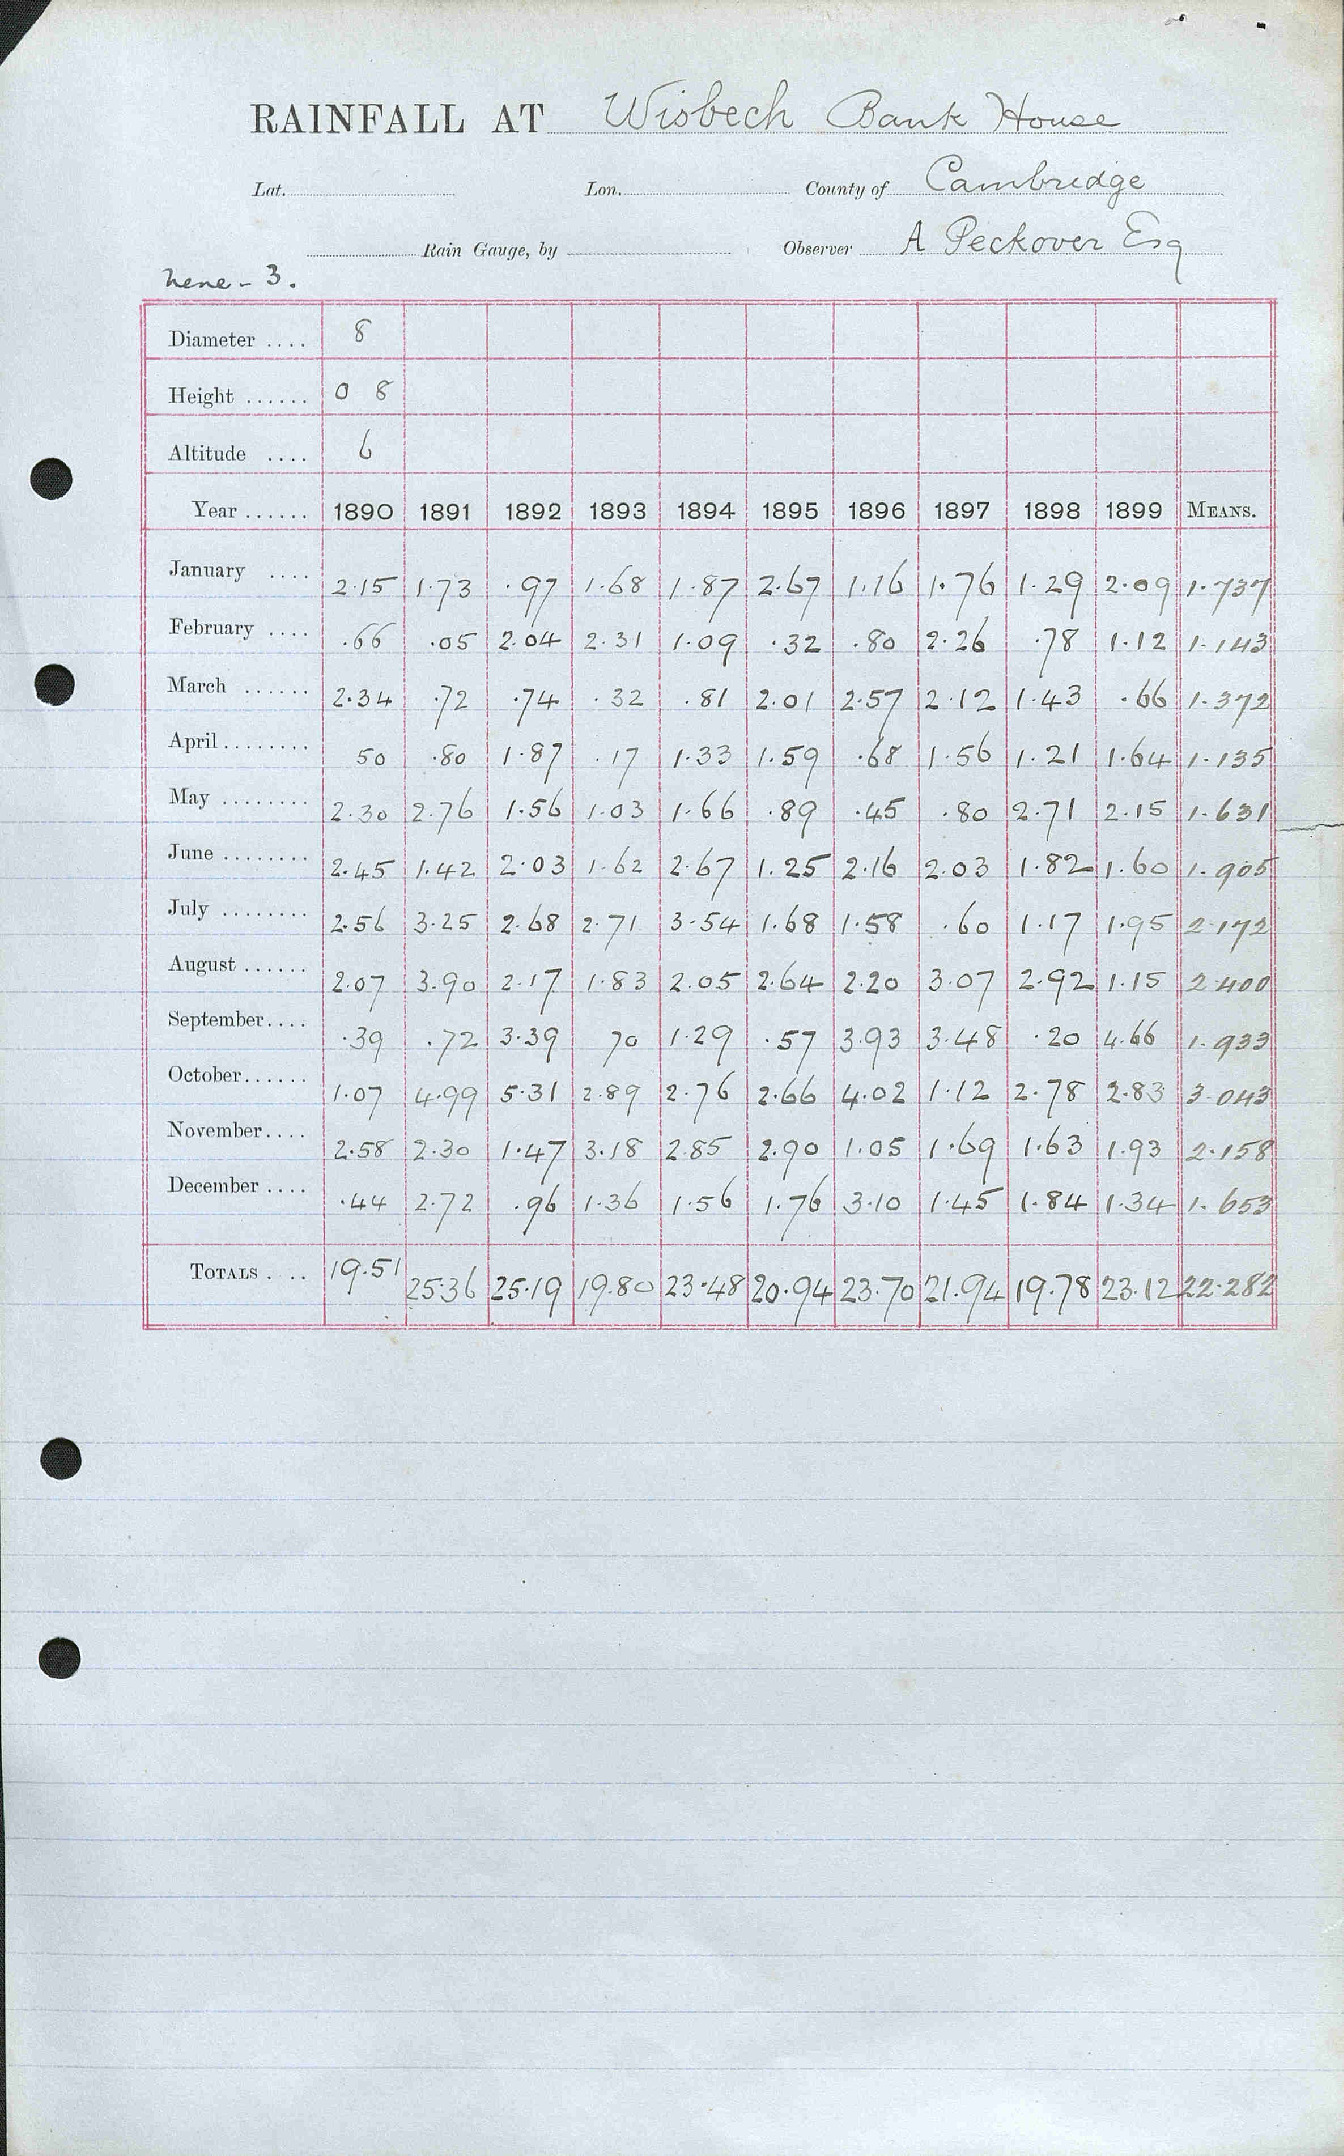 RAINFALL AT Wisbech Bank House
Lat. Lon. County of Cambridge
Rain Gauge, by Observer A Peckover Esq
Nene - 3.
Diameter .... 8
Height ...... 0 8
Altitude .... 6
Year ...... 1890 1891 1892 1893 1894 1895 1896 1897 1898 1899 MEANS.
January .... 2.15 1.73 .97 1.68 1.87 2.67 1.16 1.76 1.29 2.09 1.737
February .... .66 .05 2.04 2.31 1.09 .32 .80 2.26 .78 1.12 1.143
March ...... 2.34 .72 .74 .32 .81 2.01 2.57 2.12 1.43 .66 1.372
April ........ 50 .80 1.87 .17 1.33 1.59 .68 1.56 1.21 1.64 1.135
May ........ 2.30 2.76 1.56 1.03 1.66 .89 .45 .80 2.71 2.15 1.631
June ........ 2.45 1.42 2.03 1.62 2.67 1.25 2.16 2.03 1.82 1.60 1.905
July ........ 2.56 3.25 2.68 2.71 3.54 1.68 1.58 .60 1.17 1.95 2.172
August ...... 2.07 3.90 2.17 1.83 2.05 2.64 2.20 3.07 2.92 1.15 2.400
September .... .39 .72 3.39 70 1.29 .57 3.93 3.48 .20 4.66 1.933
October ...... 1.07 4.99 5.31 2.89 2.76 2.66 4.02 1.12 2.78 2.83 3.043
November .... 2.58 2.30 1.47 3.18 2.85 2.90 1.05 1.69 1.63 1.93 2.158
December .... .44 2.72 .96 1.36 1.56 1.76 3.10 1.45 1.84 1.34 1.653
TOTALS .... 19.51 25.36 25.19 19.80 23.48 20.94 23.70 21.94 19.78 23.12 22.282